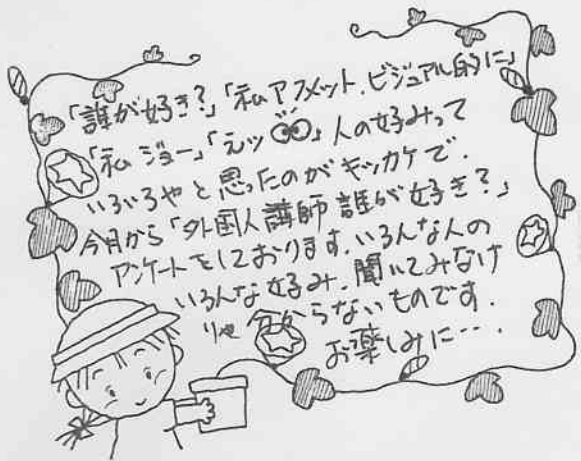 「誰が好き？」「私アフメット.ビジュアル的に」
「私ジョー」「えッ」人の好みって
いろいろやと思ったのがキッカケで.
今月から「外国人講師誰が好き？」
アンケートをしております.いろんな人の
いろんな好み.聞いてみなけ
りゃ分からないものです.
お楽しみに….